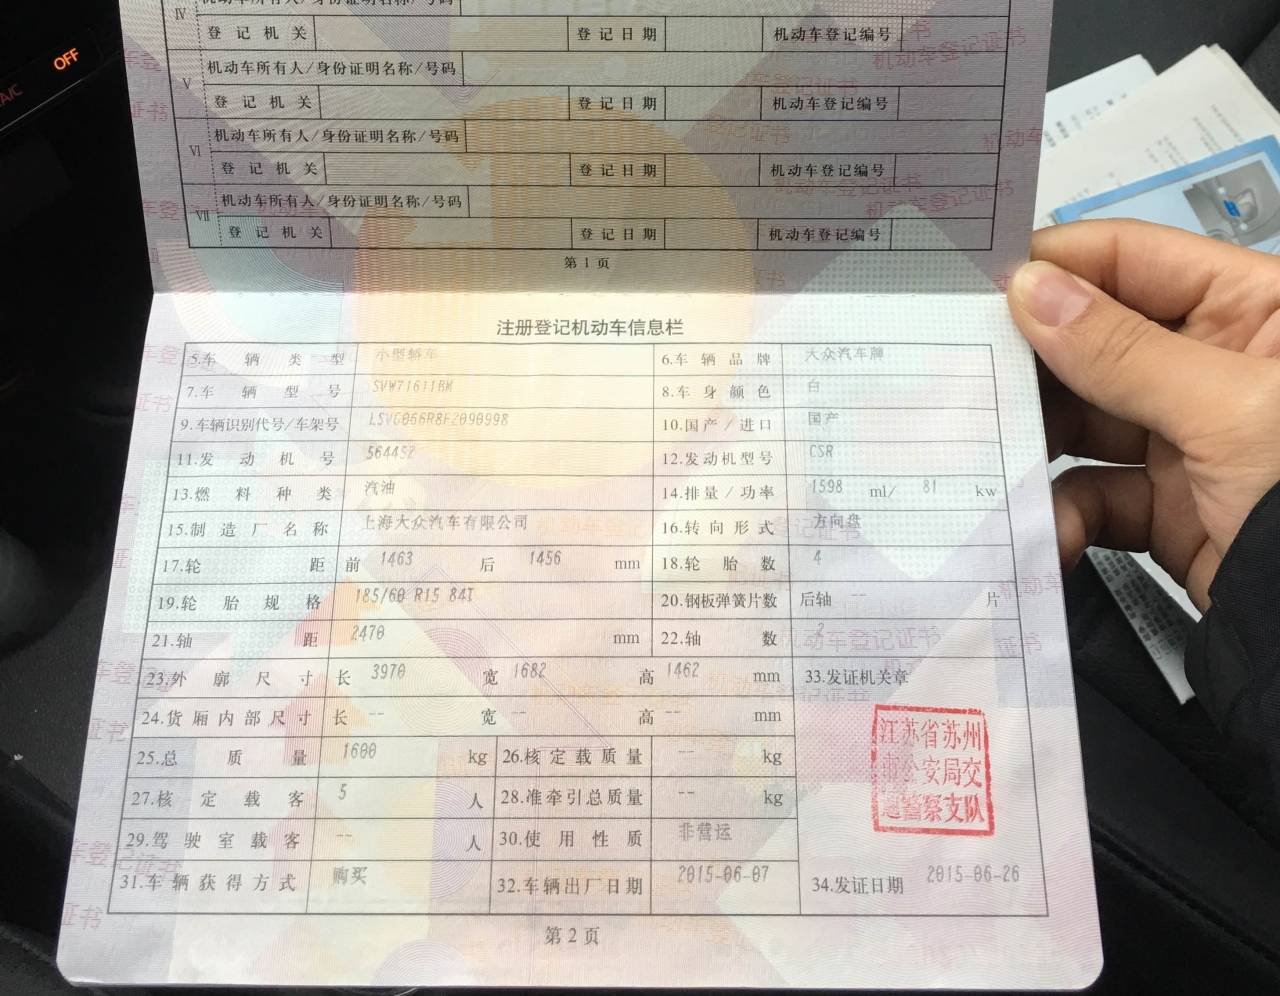 OFF
A/C
IV 机动车所有人/身份证明名称/号码
登记机关 登记日期 机动车登记编号
V 机动车所有人/身份证明名称/号码
登记机关 登记日期 机动车登记编号
VI 机动车所有人/身份证明名称/号码
登记机关 登记日期 机动车登记编号
VII 机动车所有人/身份证明名称/号码
登记机关 登记日期 机动车登记编号
第1页
注册登记机动车信息栏
5.车辆类型 小型轿车 6.车辆品牌 大众汽车牌
7.车辆型号 SVW71611BM 8.车身颜色 白
9.车辆识别代号/车架号 10.国产/进口 国产
11.发动机号 564452 12.发动机型号 CSR
13.燃料种类 汽油 14.排量/功率 1598 ml/ 81 kw
15.制造厂名称 上海大众汽车有限公司 16.转向形式 方向盘
17.轮距 前 1463 后 1456 mm 18.轮胎数 4
19.轮胎规格 185/60 R15 84T 20.钢板弹簧片数 后轴 -- 片
21.轴距 2470 mm 22.轴数 2
23.外廓尺寸 长 3970 宽 1682 高 1462 mm 33.发证机关章
24.货厢内部尺寸 长 -- 宽 -- 高 -- mm
江苏省苏州
市公安局交
通警察支队
25.总质量 1600 kg 26.核定载质量 -- kg
27.核定载客 5 人 28.准牵引总质量 -- kg
29.驾驶室载客 -- 人 30.使用性质 非营运
31.车辆获得方式 购买 32.车辆出厂日期 2015-06-07 34.发证日期 2015-06-26
第2页